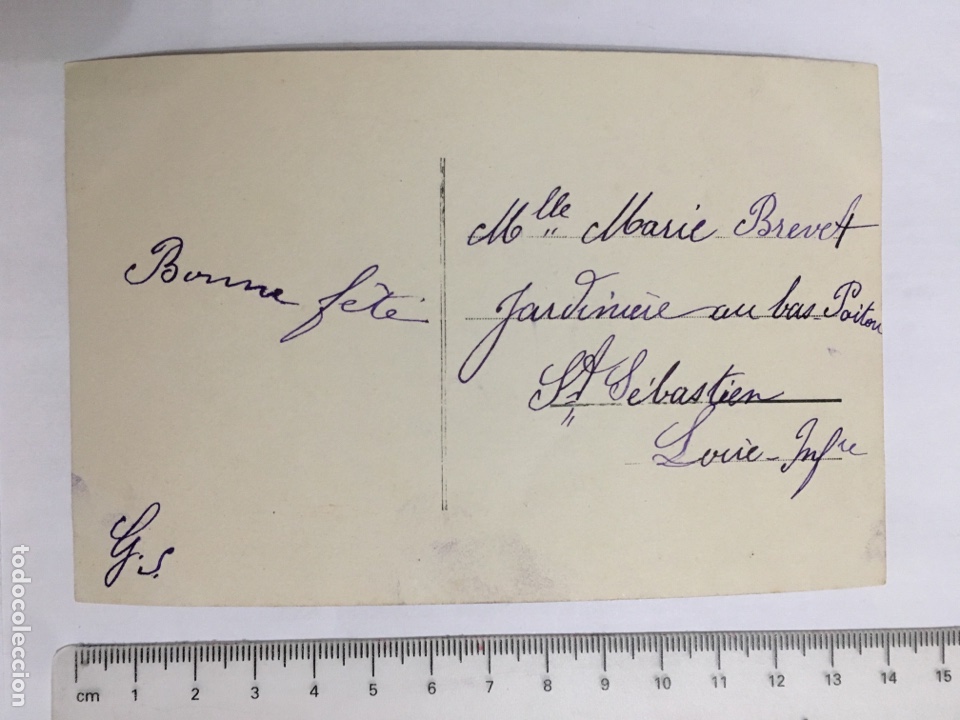 Bonne fête
G. S.
Mlle Marie Brevet
Jardinière au bas-Poitou
St Sébastien
Loire-Infre
cm 1 2 3 4 5 6 7 8 9 10 11 12 13 14 15
todocoleccion